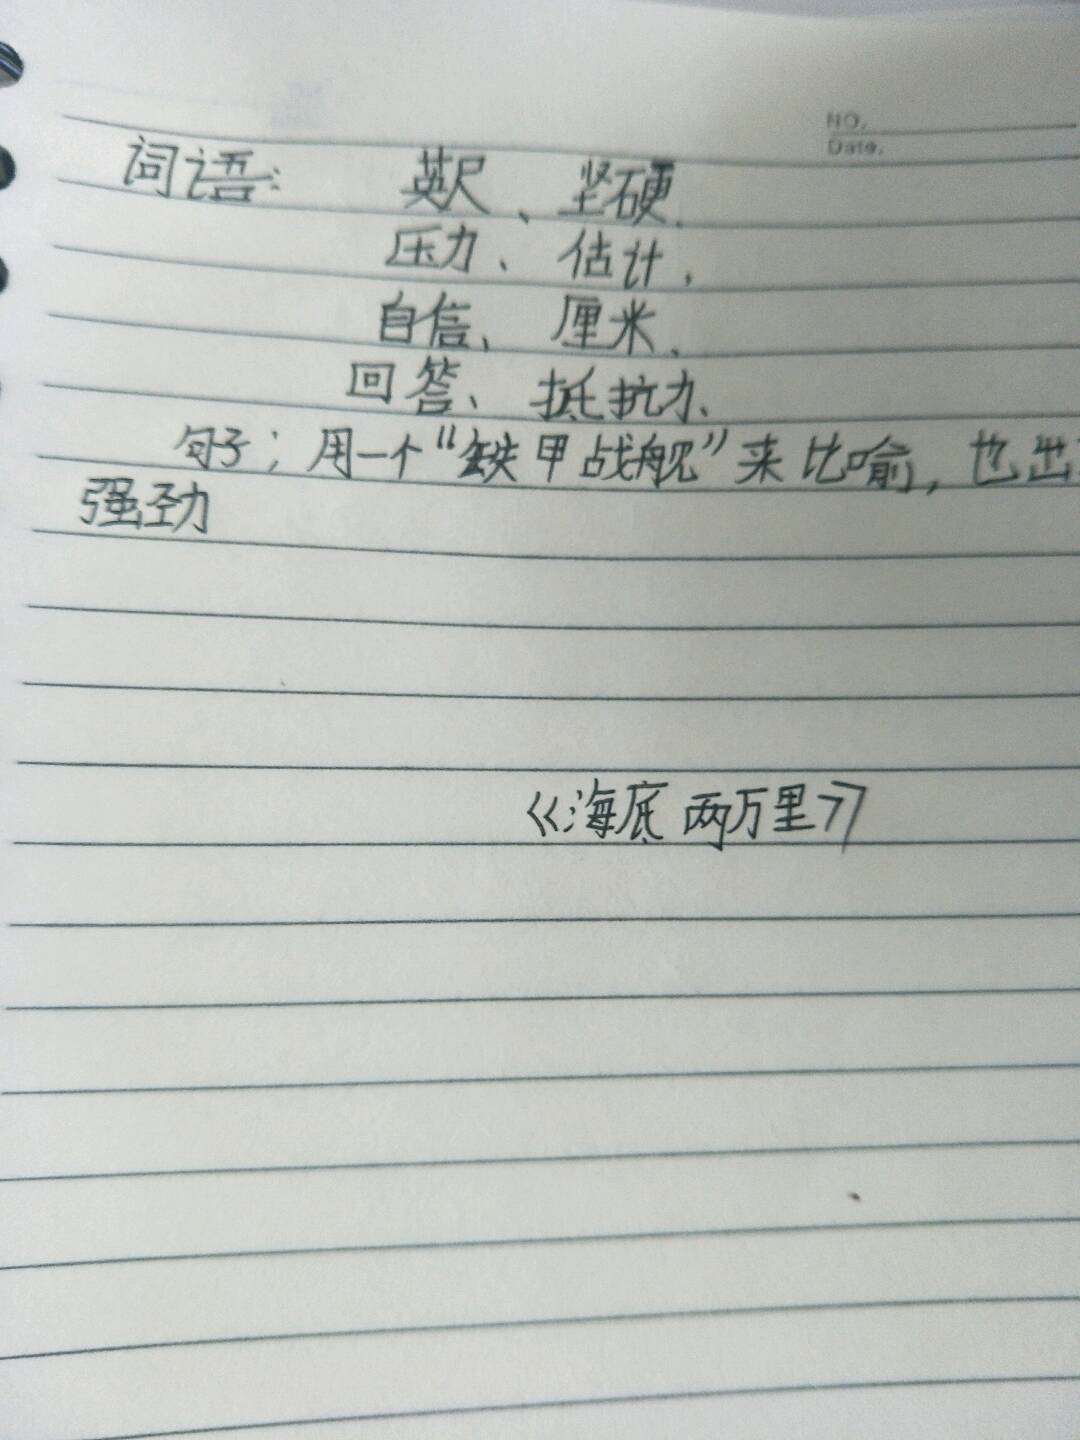 NO.
Date.
词语: 英尺、坚硬.
压力、估计,
自信、厘米、
回答、抵抗力、
句子; 用一个“铁甲战舰”来比喻, 也出
强劲
《海底两万里》